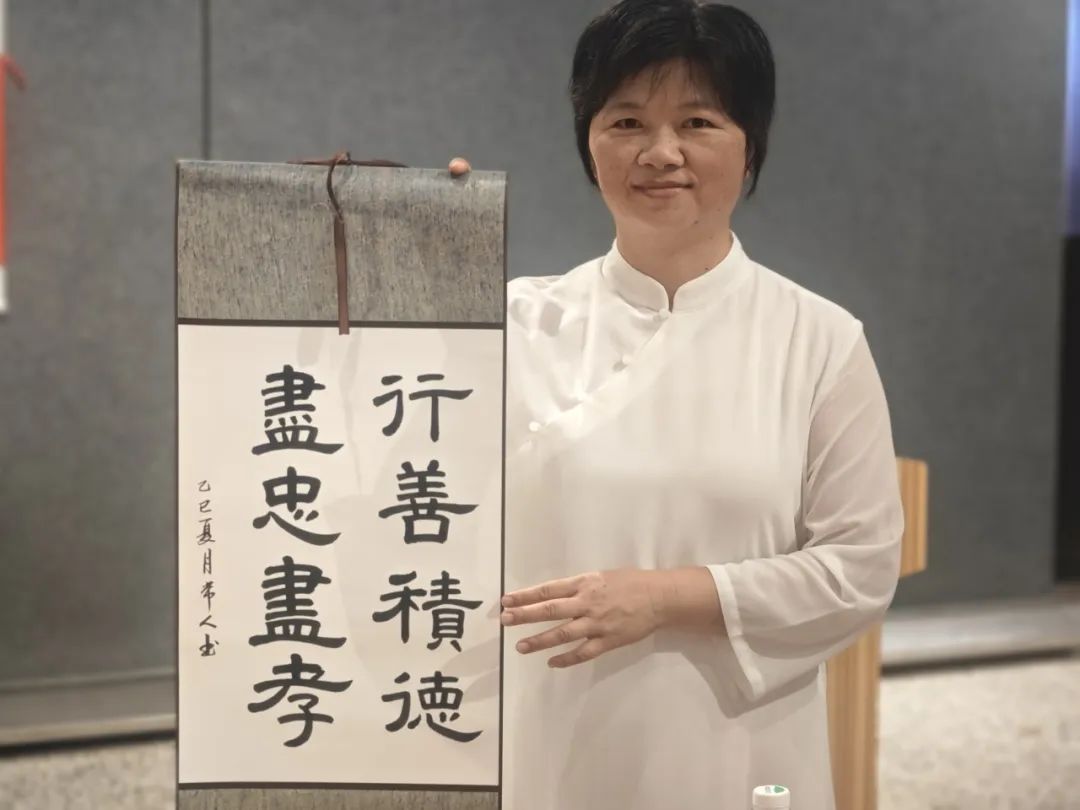 行善積德
盡忠盡孝
乙巳夏月常人书